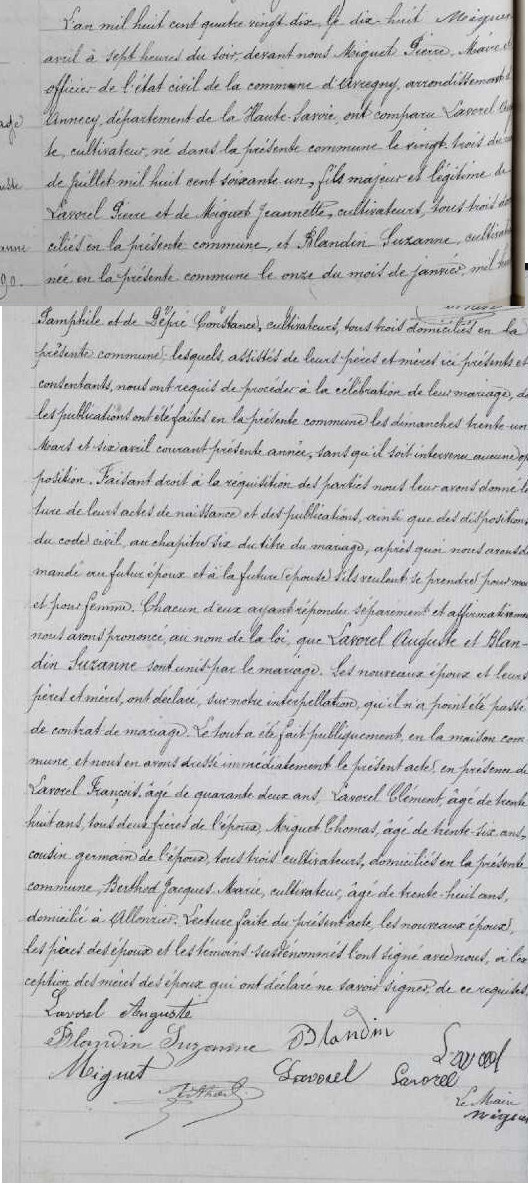 L'an mil huit cent quatre vingt dix, le dix-huit
avril à sept heures du soir, devant nous Miguet Pierre, Maire
officier de l'état civil de la commune d'Avregny, arrondissement
Annecy, département de la Haute-Savoie, ont comparu Lavorel Augus
te, cultivateur, né dans la présente commune le vingt trois du
de Juillet mil huit cent soixante un, fils majeur et légitime de
Lavorel Pierre et de Miguet Jeannette, cultivateurs, tous trois do
ciliés en la présente commune, et Blandin Suzanne, cultivat
née en la présente commune le onze du mois de janvier, mil
Pamphile et de Dépré Constance, cultivateurs, tous trois domiciliés en la
présente commune; lesquels, assistés de leurs pères et mères ici présents et
consentants, nous ont requis de procéder à la célébration de leur mariage, do
les publications ont été faites en la présente commune les dimanches trente-un
Mars et six avril courant présente année, sans qu'il soit intervenu aucune op
position. Faisant droit à la réquisition des parties nous leur avons donné le
ture de leurs actes de naissance et des publications, ainsi que des dispositions
du code civil, au chapitre six du titre du mariage, après quoi nous avons de
mandé au futur époux et à la future épouse s'ils veulent se prendre pour ma
et pour femme. Chacun d'eux ayant répondu séparement et affirmativeme
nous avons prononcé, au nom de la loi, que Lavorel Auguste et Blan-
din Suzanne sont unis par le mariage. Les nouveaux époux et leurs
pères et mères, ont déclaré, sur notre interpellation, qu'il n'a point été passé
de contrat de mariage. Le tout a été fait publiquement, en la maison com
mune, et nous en avons dressé immédiatement le présent acte, en présence de
Lavorel François, âgé de quarante deux ans, Lavorel Clément, âgé de trente
huit ans, tous deux frères de l'époux, Miguet Thomas, âgé de trente-six ans,
cousin germain de l'époux, tous trois cultivateurs, domiciliés en la présente
commune, Berthod Jacques Marie, cultivateur, âgé de trente-huit ans,
domicilié à Allonzier. Lecture faite du présent acte, les nouveaux époux,
les pères des époux et les témoins susdénommés l'ont signé avec nous, à l'ex
ception des mères des époux qui ont déclaré ne savoir signer, de ce requises.
Lavorel Auguste
Blandin Suzanne Blandin Lavorel
Miguet Lavorel Lavorel
Le Maire